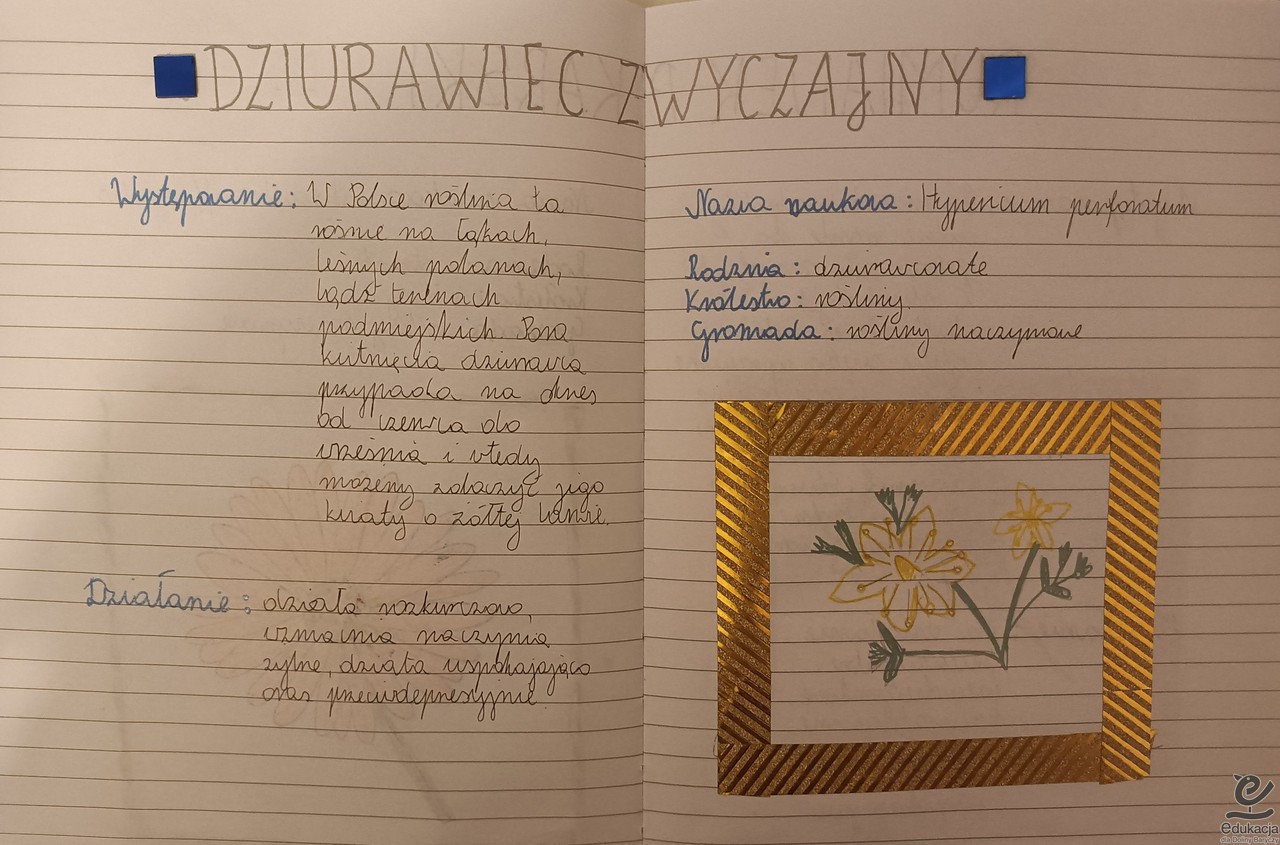 DZIURAWIEC ZWYCZAJNY
Występowanie: W Polsce roślina ta
rośnie na łąkach,
leśnych polanach,
bądź terenach
podmiejskich Pora
kwitnięcia dziurawca
przypada na okres
od czerwca do
września i wtedy
możemy zobaczyć jego
kwiaty o żółtej barwie.
Działanie: działa rozkurczowo,
wzmacnia naczynia
żylne, działa uspokajająco
oraz przeciwdepresyjnie.
Nazwa naukowa: Hypericum perforatum
Rodznia: dziurawcowate
Królestwo: rośliny
Gromada: rośliny naczyniowe
edukacja
dla Doliny Baryczy